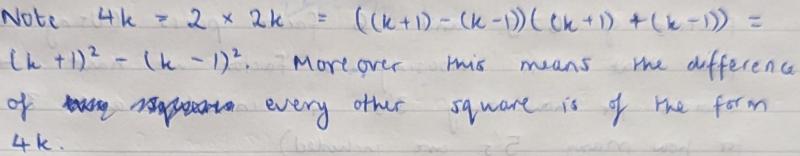 Note 4k = 2 × 2k = ((k+1) - (k-1))((k+1) + (k-1)) =
(k+1)² - (k-1)². Moreover this means the difference
of every other square is of the form
4k.